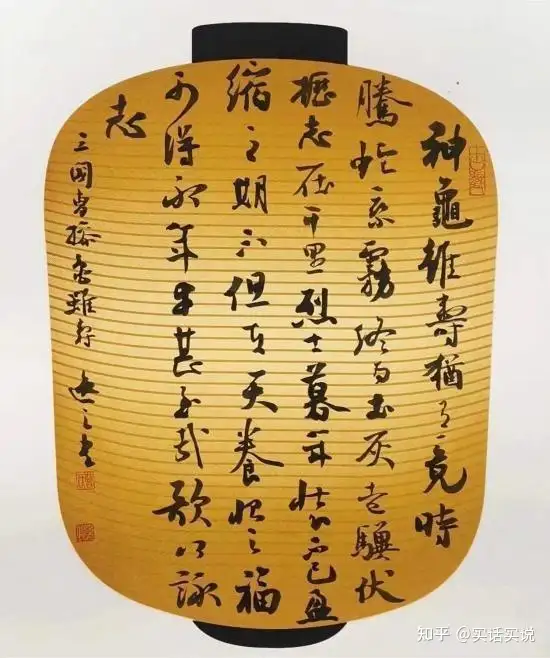 神龜雖壽猶有竟時
騰蛇乘霧終為土灰老驥伏
櫪志在千里烈士暮年壯心不已盈
縮之期不但在天養怡之福
可得永年幸甚至哉歌以詠
志
三國曹操龜雖壽 書
知乎 @实话实说